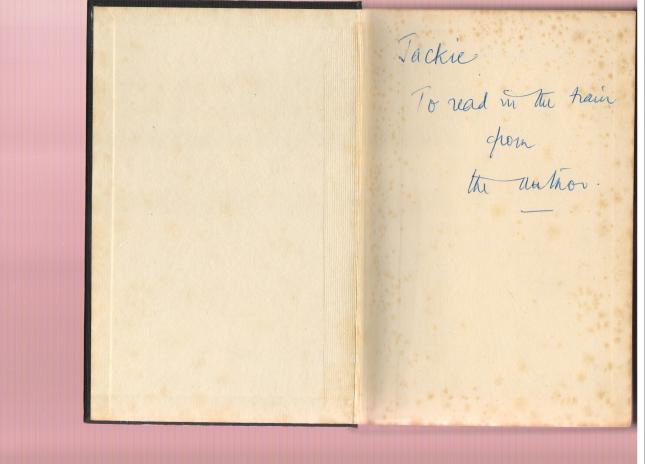 Jackie
To read in the train
from
the author.